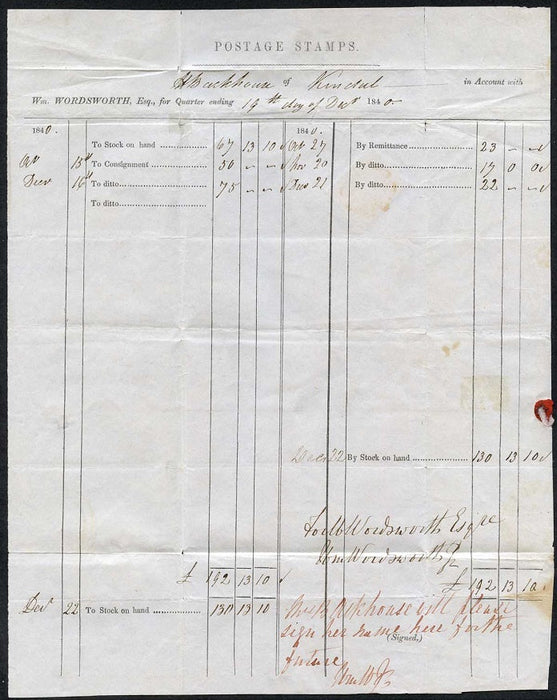 POSTAGE STAMPS.
H Backhouse of Kendal in Account with
Wm. WORDSWORTH, Esq., for Quarter ending 19th day of Decr 1840
1840. 1840.
To Stock on hand 67 13 10 Oct 27 By Remittance 23 - -
Oct 15th To Consignment 50 - - Nov 20 By ditto 17 0 0
Decr 16th To ditto 75 - - Decr 21 By ditto 22 - -
To ditto
Decr 22 By Stock on hand 130 13 10
For W Wordsworth Esqre
Wm Wordsworth Jr
£ 192 13 10 £ 192 13 10
Decr 22 To Stock on hand 130 13 10
Mrs Backhouse will please
sign her name here for the
(Signed,)
future
Wm W Jr